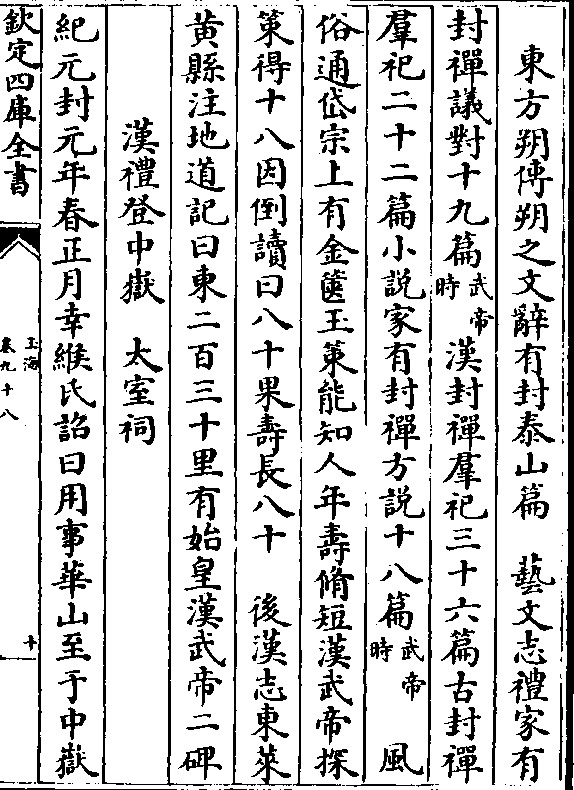 東方朔傳朔之文辭有封泰山篇　藝文志禮家有
封禪議對十九篇武帝時漢封禪羣祀三十六篇古封禪
羣祀二十二篇小説家有封禪方説十八篇武帝時　風
俗通岱宗上有金篋玉策能知人年壽脩短漢武帝探
策得十八因倒讀曰八十果壽長八十　後漢志東萊
黄縣注地道記曰東二百三十里有始皇漢武帝二碑
漢禮登中嶽　太室祠
紀元封元年春正月幸緱氏詔曰用事華山至于中嶽
欽定四庫全書
玉海
卷九十八
十